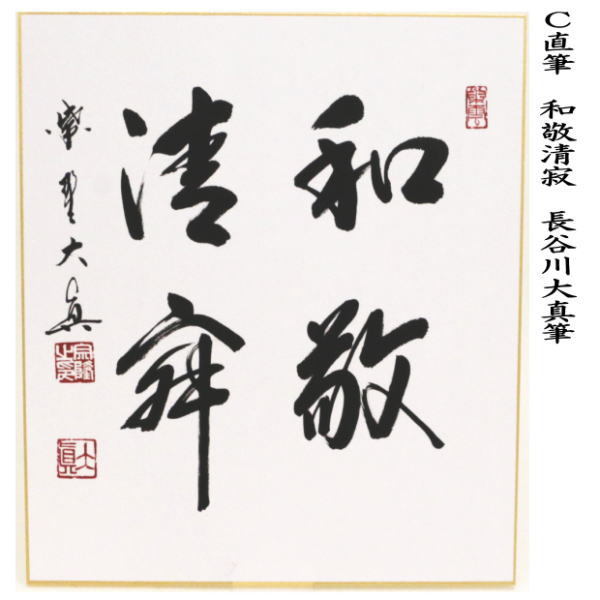 C直筆　和敬清寂　長谷川大真筆
和敬
清寂
紫野大真
大真